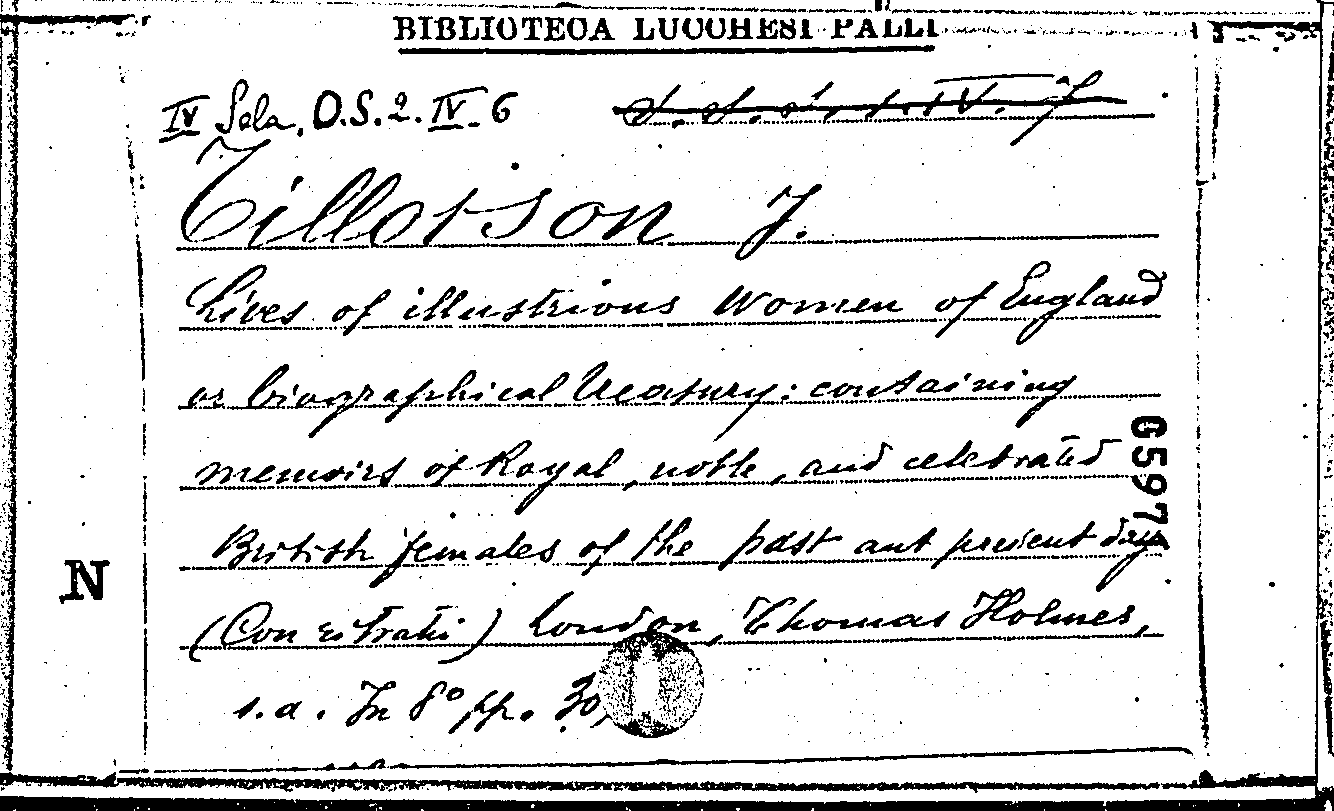 BIBLIOTECA LUCCHESI PALLI
IV Sela, D.S.2. IV. 6
Tillotson J.
Lives of illustrious Women of England
or biographical treasury: containing
memoirs of Royal, noble, and celebrated
British females of the past ant present day
(Con ritratti) London, Thomas Holmes,
s.a. In 8° pp. 30
65977
N